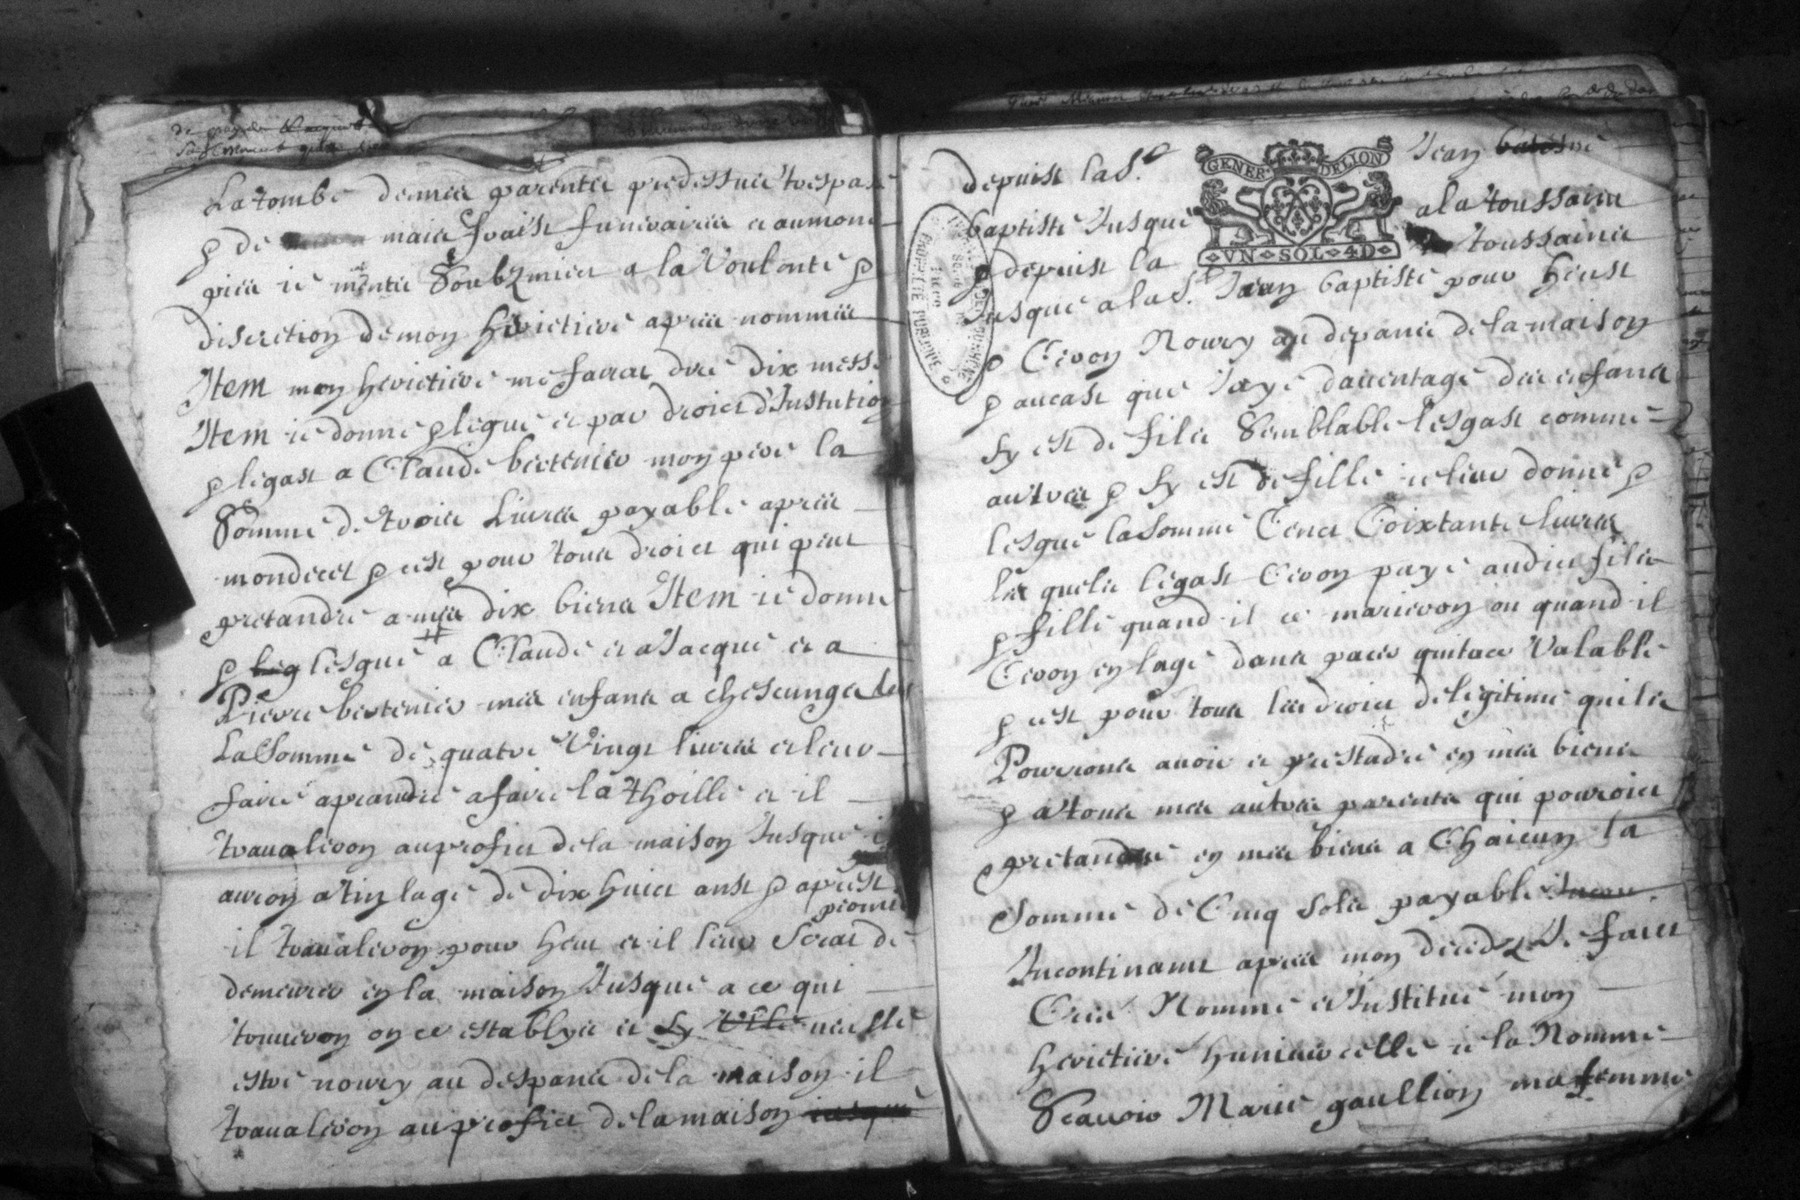 La tombe de mes parents predessus trespas
p de mais fraist funeraires et aumon
pies ie m'entes Soubzmiet a la Voulonte p
discretion de mon herietiere apres nommee
Item mon herietiere me fairat dire dix mess
Item ie donne p legue et par droict d'Instution
p legast a Claude bertenier mon pere la
Somme de trois Livres payable apres
mon deces p cest pour tous droict qui peut
pretandre a mes dix biens Item ie donne
p lesgue a Claude et a Jacque et a
Pierre bertenier mes enfans a chescunge
La Somme de quatre Vingt livres et leur
faire aprandre a faire la thoille et il
travaleron au profict de la maison Jusque
auron atin lage de dix huict anst p aprest
il travaleron pour heu et il leur Serat de
demeurer en la maison Jusque a ce qui
trouveron on ce establyee et Sy
estre nowry au despans de la maison il
travaleron au profict de la maison
GENER DE LION
VN SOL 4D
PROPRIÉTÉ PUBLIQUE
depuist la St Jean
baptiste Jusque a la toussains
p depuist la toussains
Jusque a la St Jean baptiste pour heust
p Ceron Nowry au depance de la maison
p aucast que Jaye daventage des enfans
Sy est de filz Semblable lesgast comme
autres p Sy est de fille ie leur donne p
lesgue la Somme Cent Coixtante livres
les quelz legast Ceron paye audict filz
p fille quand il ce marieron ou quand il
Ceron en lage dans pacer quitace Valable
p cest pour tous les droict de legitime quilz
Pourrons avoir et prestadre en mes biens
p a tous mes autres parents qui pouroict
pretandre en mes biens a Chaicun la
Somme de Cinq Solz payable
Incontinant apres mon decedz Je faict
Cree Nomme et Institue mon
herietiere huniverselle ie la Nomme
Scavoir Marie gaullion ma femme